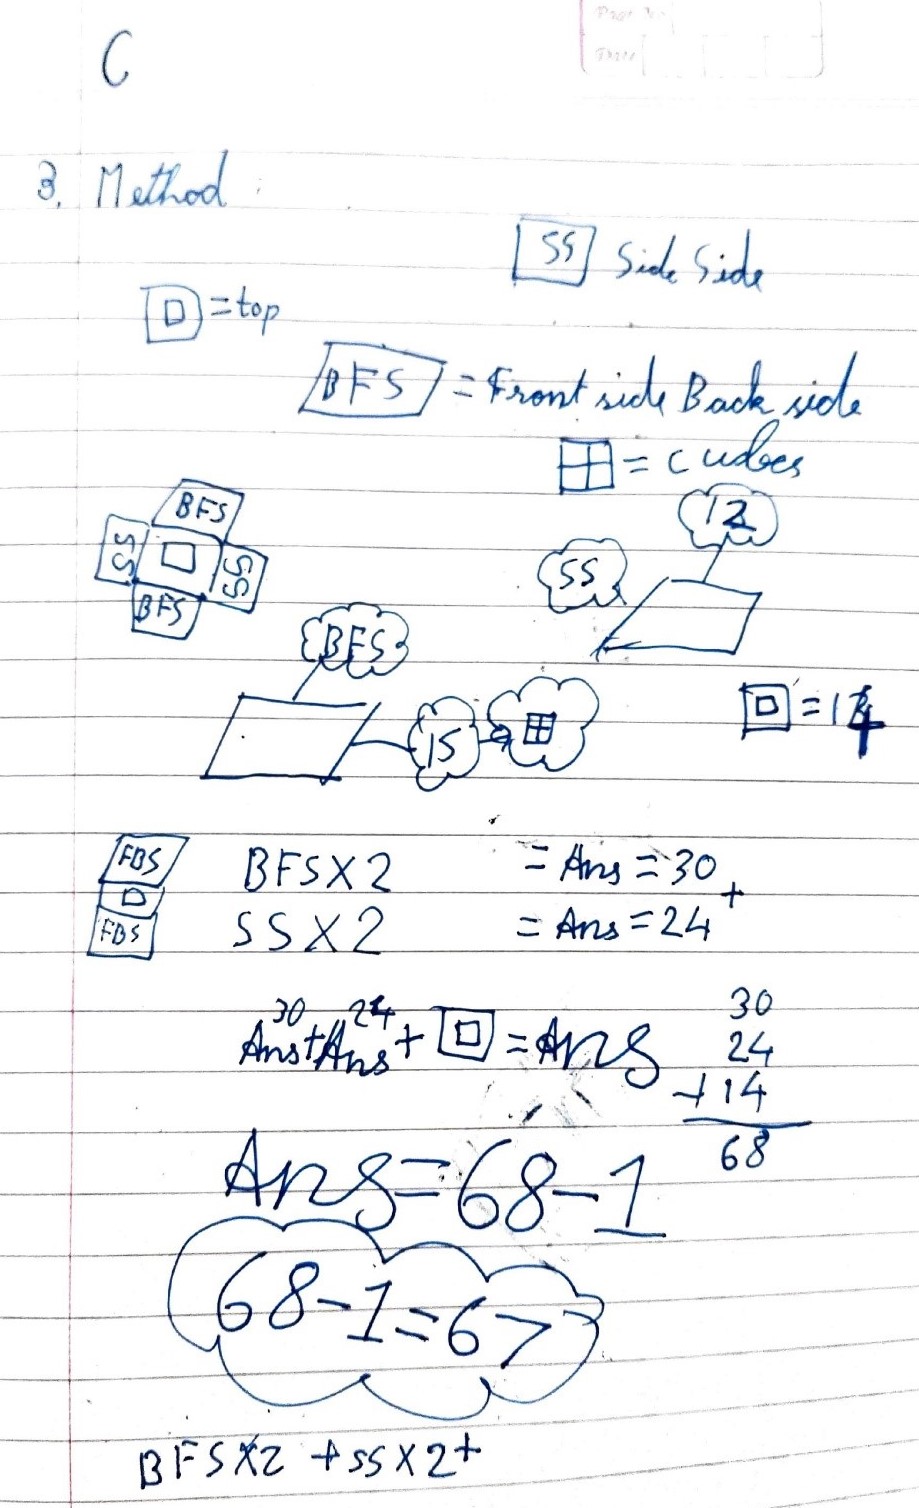 C
3. Method :
SS Side Side
D = top
BFS = Front side Back side
= cubes
BFS
SS D SS
BFS
12
SS
BFS
15
D = 14
FBS BFS X 2 = Ans = 30 +
D
FBS SS X 2 = Ans = 24
30 24
Ans + Ans + D = Ans
30
24
+ 14
68
Ans = 68 - 1
68 - 1 = 67
BFS X 2 + SS X 2 +